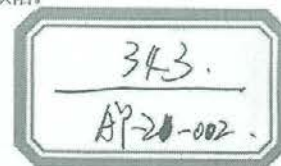 343.
AP-21-002.